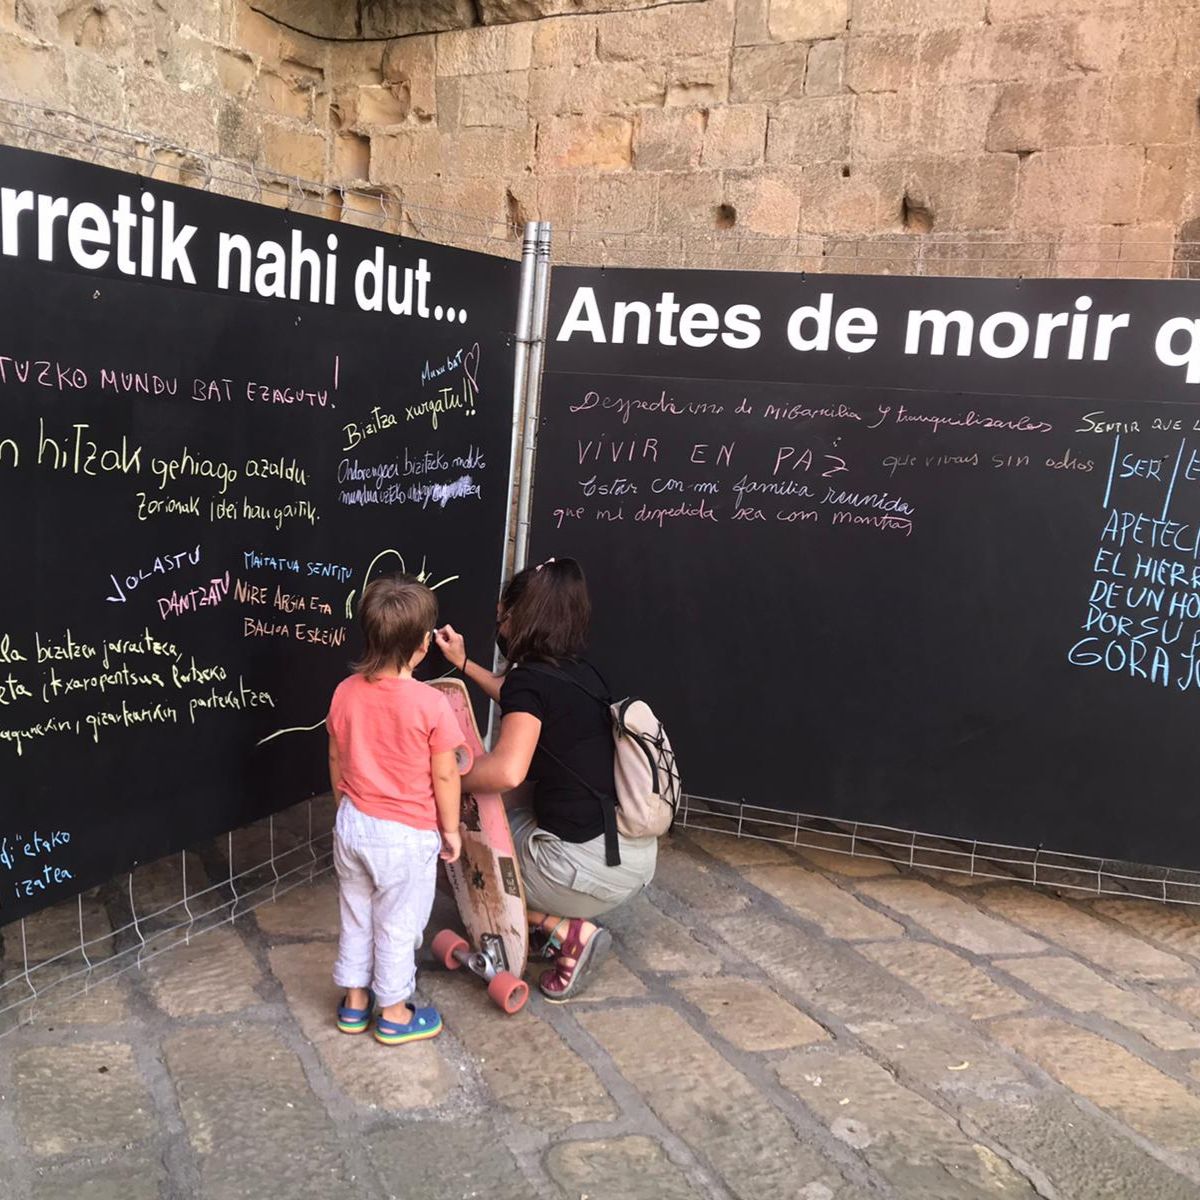 rretik nahi dut...
TUZKO MUNDU BAT EZAGUTU!
Muxu bat
Bizitza xurgatu!!
n hitzak gehiago azaldu.
zorionak idei haugaitik.
Ondorengoei bizitzeko
JOLASTU
DANTZATU
MAITATUA SENTITU
NIRE ARGIA ETA
BALIOA ESKEINI
la bizitzen jarraitzea,
eta itxaropentsua
lagunekin, gizarteankin partekatzea
izatea.
Antes de morir q
Despedirme de mi familia y tranquilizarlos
VIVIR EN PAZ
que vivais sin odios
Estar con mi familia reunida
que mi despedida sea con mantras
SENTIR QUE L
SER E
APETECI
EL HIERR
DE UN HO
POR SU P
GORA JU